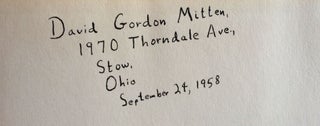 David Gordon Mitten,
1970 Thorndale Ave.,
Stow,
Ohio
September 24, 1958